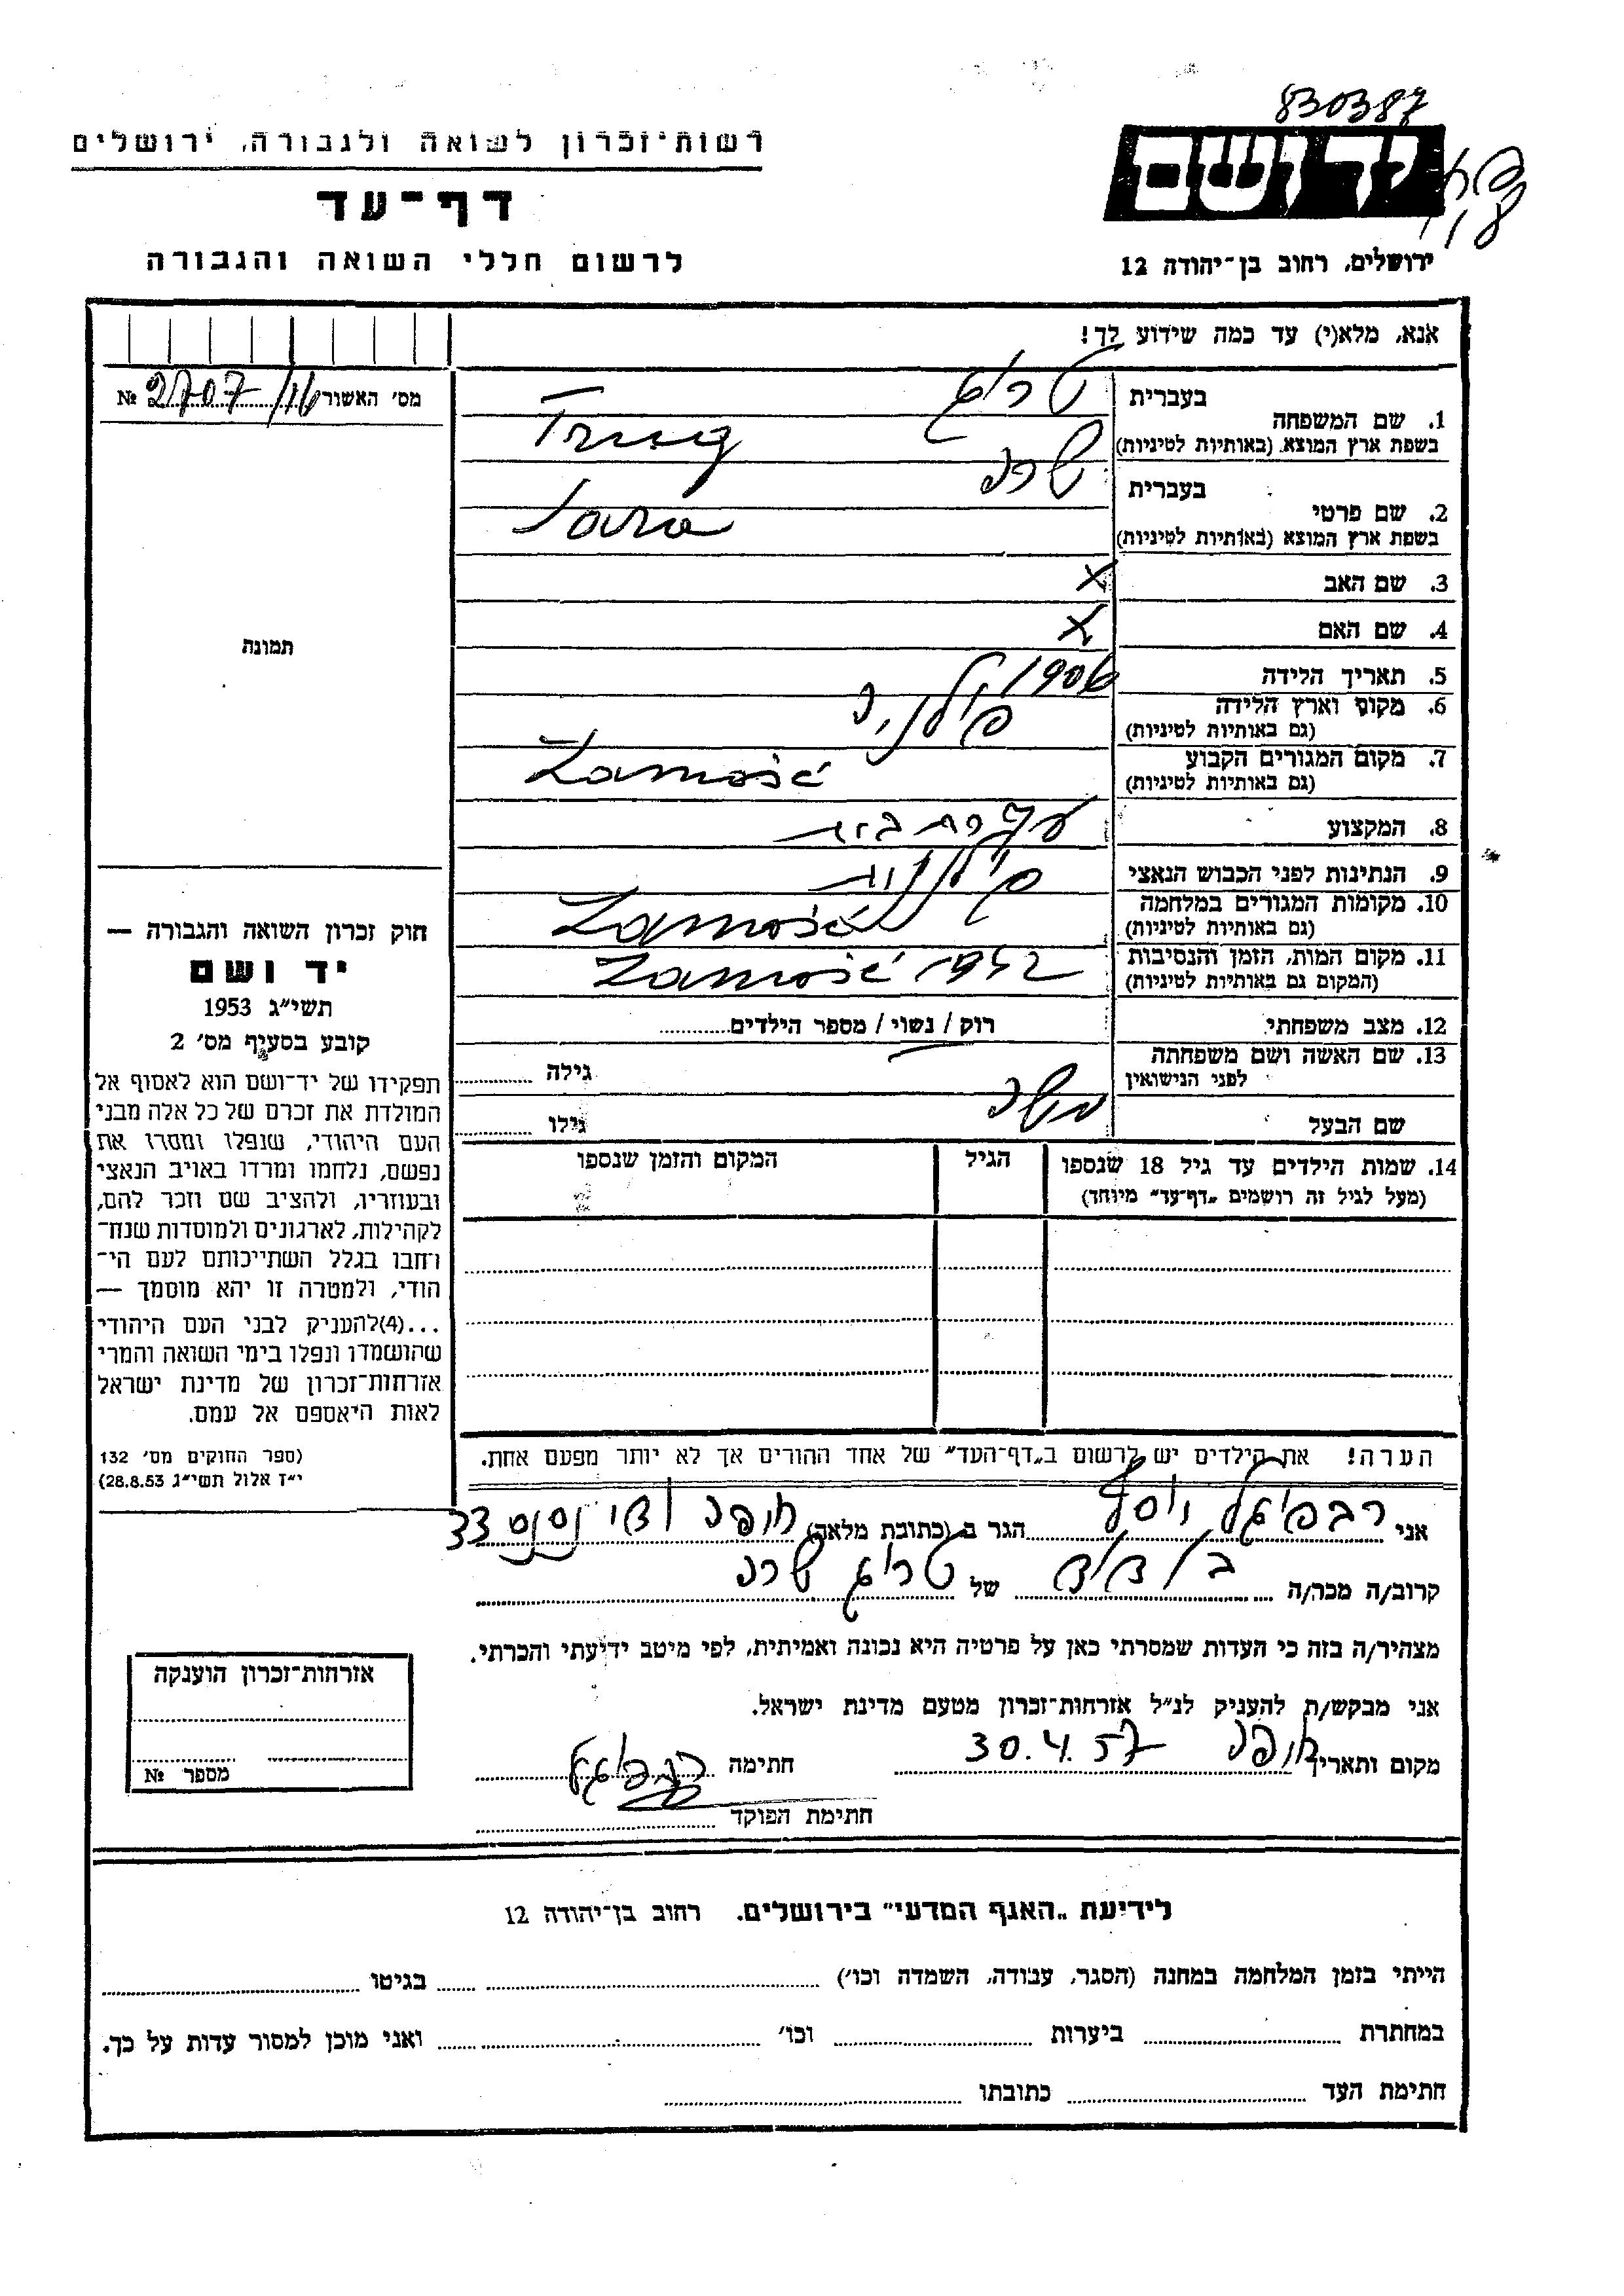 830387
רשות־זכרון לשואה ולגבורה, ירושלים
יד ושם
דף־עד
לרשום חללי השואה והגבורה
ירושלים, רחוב בן־יהודה 12
אנא, מלא(י) עד כמה שידוע לך!
מס׳ האשור 2707/16 №
1. שם המשפחה
בעברית טרוג
בשפת ארץ המוצא (באותיות לטיניות) Trug
2. שם פרטי
בעברית שרה
בשפת ארץ המוצא (באותיות לטיניות) Sara
3. שם האב X
4. שם האם X
תמונה
5. תאריך הלידה 1906
6. מקום וארץ הלידה פולניה
(גם באותיות לטיניות)
7. מקום המגורים הקבוע Zamość
(גם באותיות לטיניות)
8. המקצוע עקרת בית
9. הנתינות לפני הכבוש הנאצי פולנית
10. מקומות המגורים במלחמה Zamość
(גם באותיות לטיניות)
11. מקום המות, הזמן והנסיבות Zamość 1942
(המקום גם באותיות לטיניות)
12. מצב משפחתי רוק / נשוי / מספר הילדים
13. שם האשה ושם משפחתה
לפני הנישואין גילה
שם הבעל משה גילו
14. שמות הילדים עד גיל 18 שנספו הגיל המקום והזמן שנספו
(מעל לגיל זה רושמים „דף־עד” מיוחד)
חוק זכרון השואה והגבורה —
יד ושם
תשי״ג 1953
קובע בסעיף מס׳ 2
תפקידו של יד־ושם הוא לאסוף אל
המולדת את זכרם של כל אלה מבני
העם היהודי, שנפלו ומסרו את
נפשם, נלחמו ומרדו באויב הנאצי
ובעוזריו, ולהציב שם וזכר להם,
לקהילות, לארגונים ולמוסדות שנח־
רבו בגלל השתייכותם לעם הי־
הודי, ולמטרה זו יהא מוסמך —
...(4)להעניק לבני העם היהודי
שהושמדו ונפלו בימי השואה והמרי
אזרחות־זכרון של מדינת ישראל
לאות היאספם אל עמם.
(ספר החוקים מס׳ 132
י״ז אלול תשי״ג 28.8.53)
הערה! את הילדים יש לרשום ב„דף־העד” של אחד ההורים אך לא יותר מפעם אחת.
אני יוסף הגר ב (כתובת מלאה) חיפה ודי נסנס 33
קרוב/ה מכר/ה בן דוד של טרוג שרה
מצהיר/ה בזה כי העדות שמסרתי כאן על פרטיה היא נכונה ואמיתית, לפי מיטב ידיעתי והכרתי.
אני מבקש/ת להעניק לנ״ל אזרחות־זכרון מטעם מדינת ישראל.
מקום ותאריך חיפה 30.4.57 חתימה
חתימת הפוקד
אזרחות־זכרון הוענקה
מספר №
לידיעת „האגף המדעי” בירושלים. רחוב בן־יהודה 12
הייתי בזמן המלחמה במחנה (הסגר, עבודה, השמדה וכו׳) בגיטו
במחתרת ביערות וכו׳ ואני מוכן למסור עדות על כך.
חתימת העד כתובתו